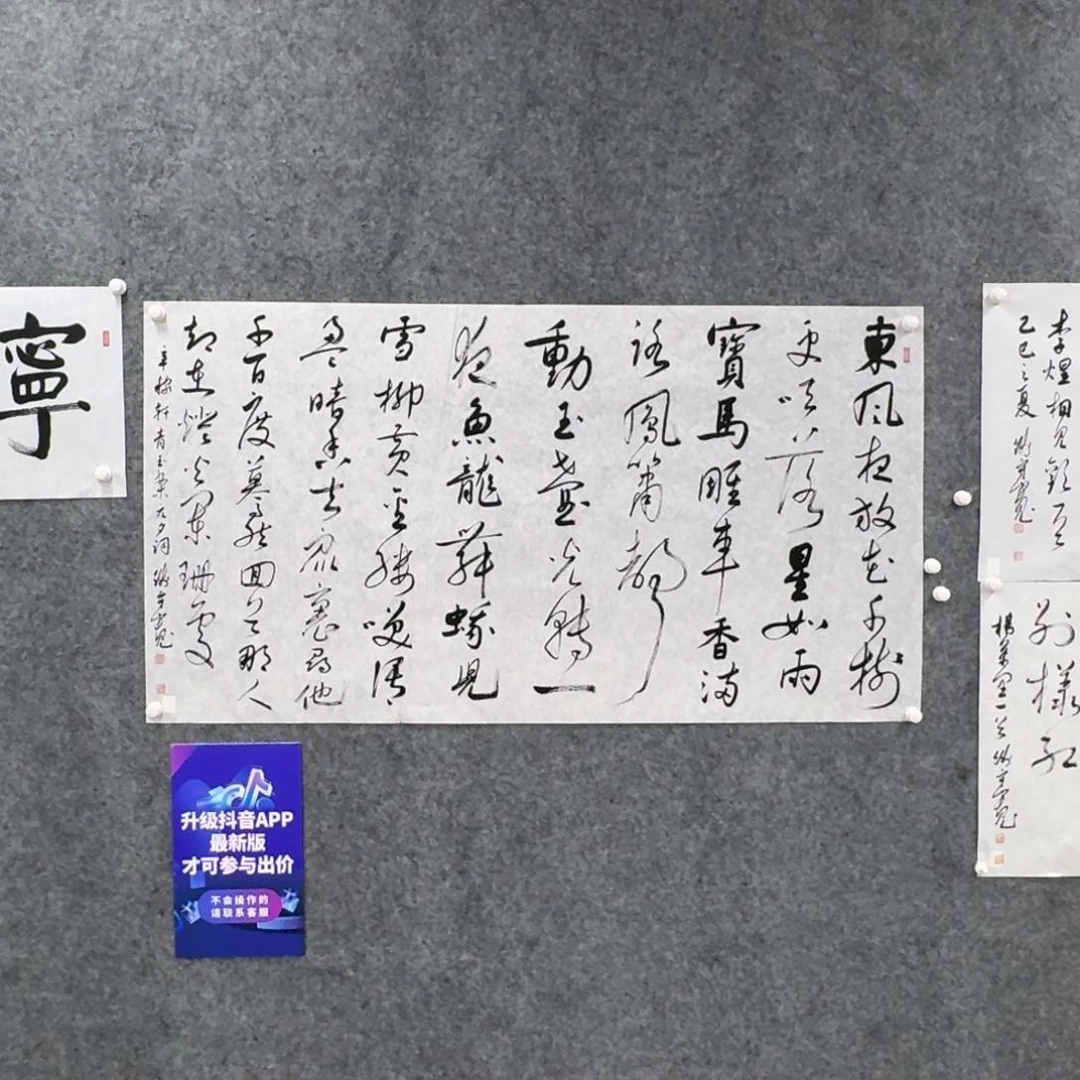 李煜相見歡
乙巳之夏
東風夜放花千樹
更吹落星如雨
寶馬雕車香滿
路鳳簫聲
動玉壺光轉一
夜魚龍舞蛾兒
雪柳黃金縷笑語
盈々暗香去眾裏尋他
千百度驀然回首那人
却在燈火闌珊處
辛稼軒青玉案元夕詞
寧
別樣紅
楊萬里一首
升级抖音APP
最新版
才可参与出价
不会操作的
请联系客服